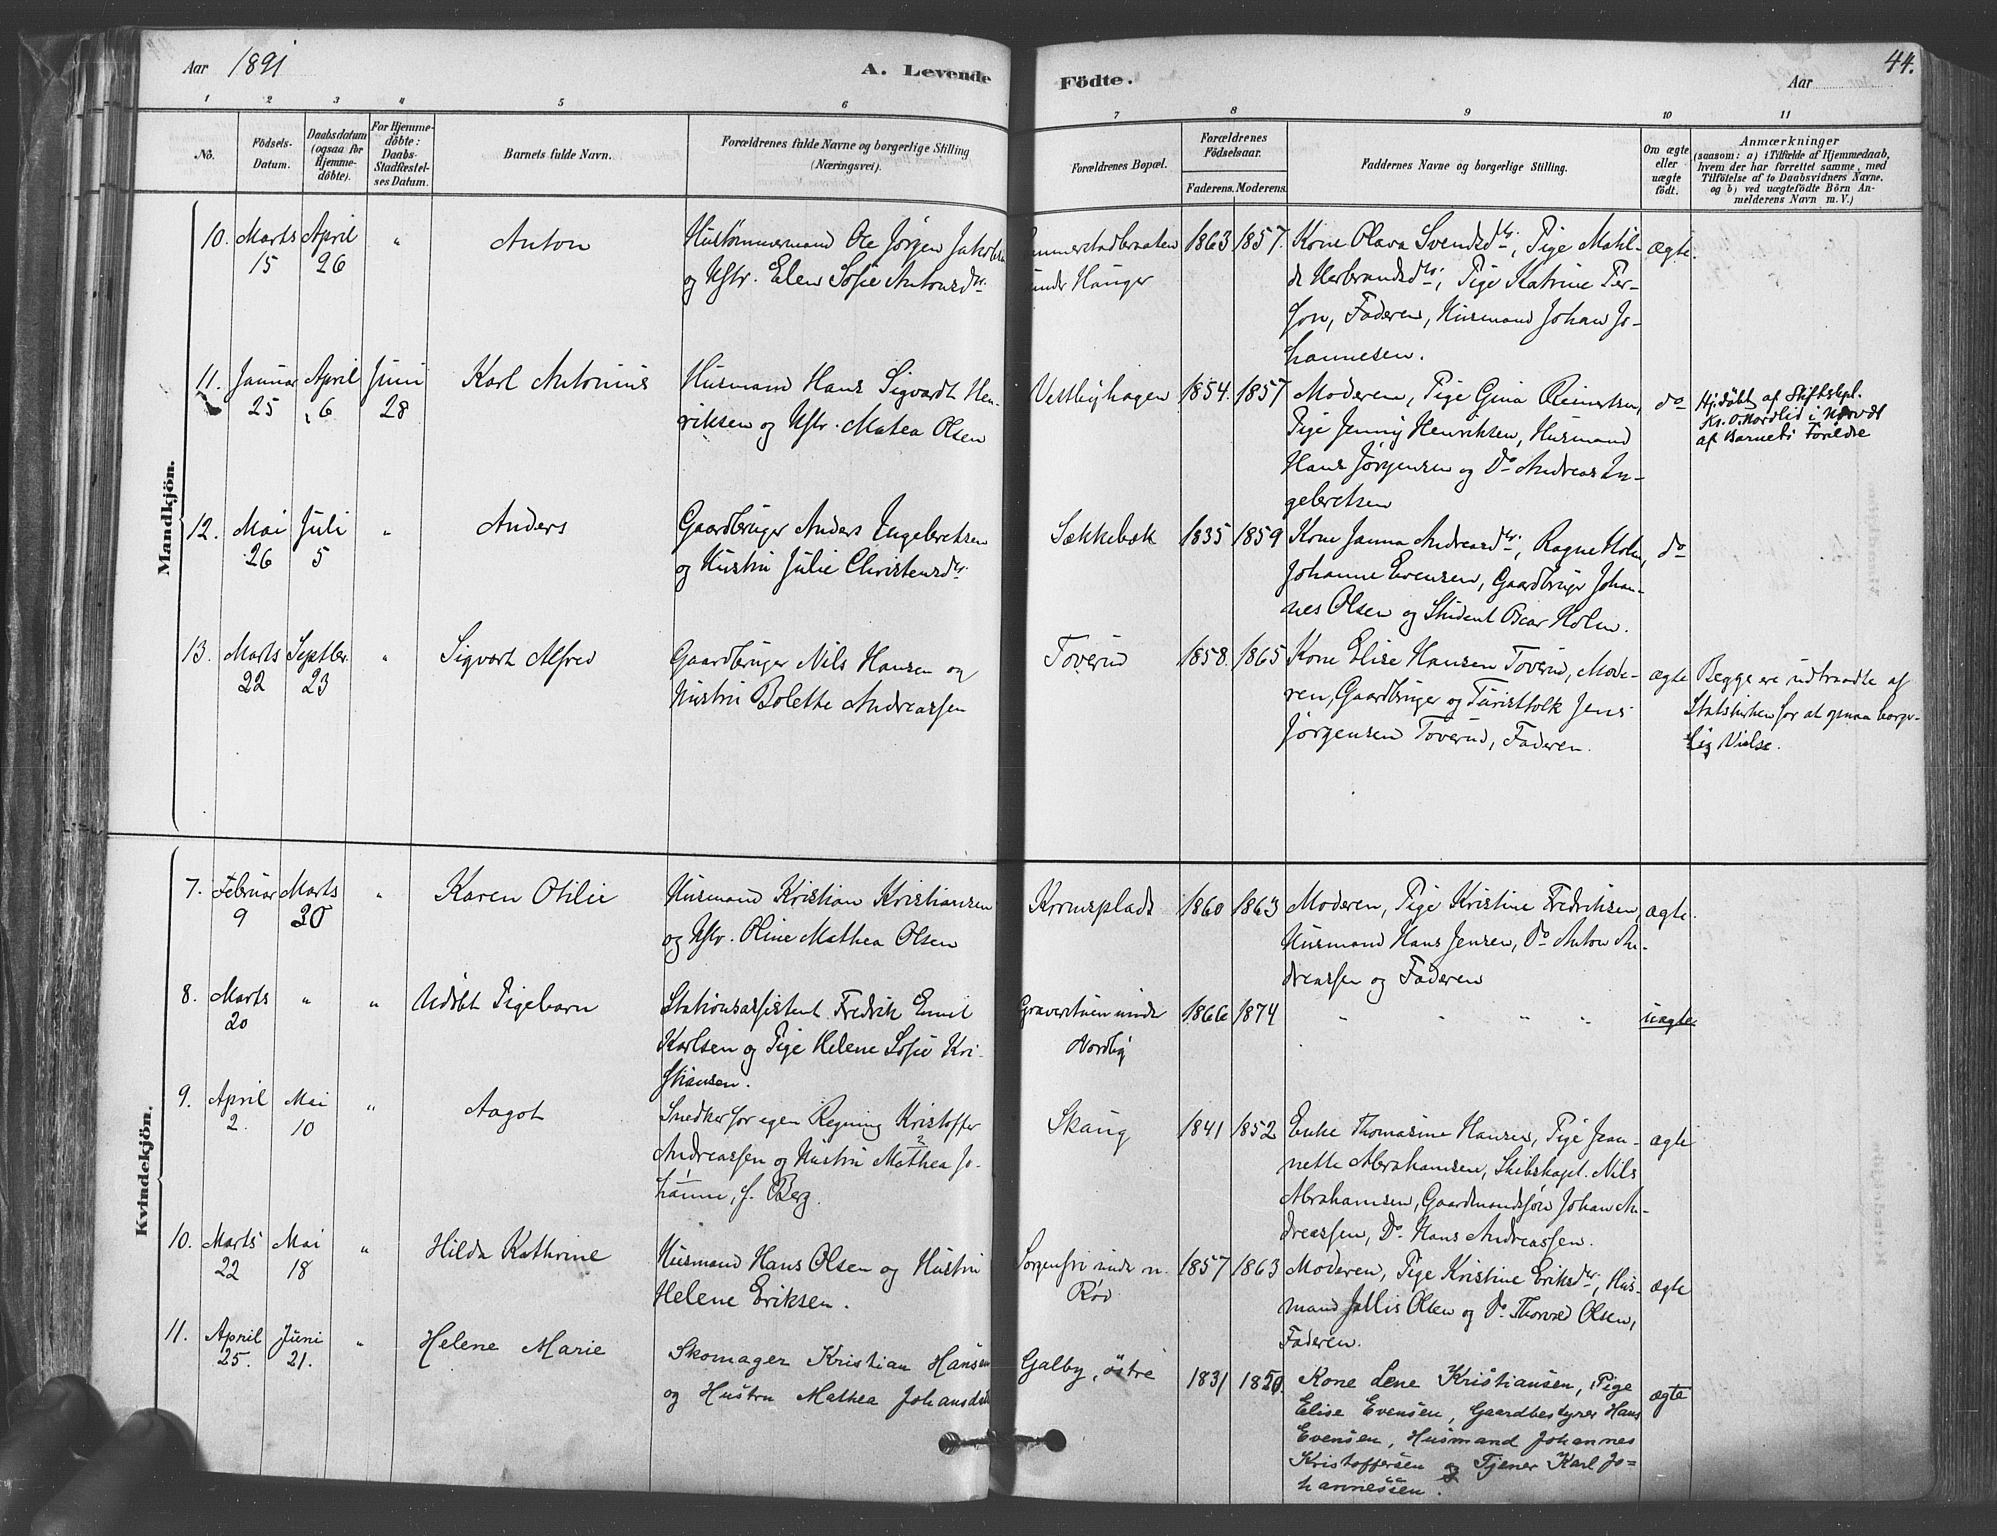 Aar 1891
A. Levende Födte.
Aar
44.
1 2 3 4 5 6 7 8 9 10 11
No.
Födsels-
Datum.
Daabsdatum
(ogsaa for
Hjemme-
döbte).
For Hjemme-
döbte:
Daabs-
Stadfæstel-
ses Datum.
Barnets fulde Navn.
Forældrenes fulde Navne og borgerlige Stilling
(Næringsvei).
Forældrenes Bopæl.
Forældrenes
Födselsaar.
Faderens. Moderens.
Faddernes Navne og borgerlige Stilling.
Om ægte
eller
uægte
födt.
Anmærkninger
(saasom: a) i Tilfælde af Hjemmedaab,
hvem der har forrettet samme, med
Tilföielse af to Daabsvidners Navne,
og b) ved uægtefödte Börn An-
melderens Navn m. V.)
Mandkjön.
10. Marts
15
April
26
"
Anton
Hustømmermand Ole Jørgen Jakobsen
og Hstr. Elen Sofie Antonsdtr.
under Hauger
1863 1857.
Kone Olava Svendsdtr., Pige Matil-
de Herbrandsdtr., Pige Katrine Per-
son, Faderen, Husmand Johan Jo-
hannesen.
ægte.
11. Januar
25
April
6
Juni
28
Karl Antonius
Husmand Hans Sigvardt Hen-
riksen og Hstr. Matea Olsen
Vestbyhagen
1854. 1857
Moderen, Pige Gina Reinertsen,
Pige Jenny Henriksen, Husmand
Hans Jørgensen og Do Andreas In-
gebretsen
do
Hj.døbt af Stiftskpl.
Kr. O. Nordlid i Nærvær
af Barnets Forældre
12. Mai
26
Juli
5
"
Anders
Gaardbruger Anders Engebretsen
og Hustru Julie Christensdtr.
Sækkebæk
1835 1859
Kone Janna Andreasdtr., Ragne Holm,
Johanne Evensen, Gaardbruger Johan-
nes Olsen og Student Oscar Holm.
do
13. Marts
22
Septbr.
23
"
Sigvart Alfred
Gaardbruger Nils Hansen og
Hustru Bolette Andreassen
Toverud
1858. 1865
Kone Elise Hansen Toverud, Mode-
ren, Gaardbruger og Turistfolk Jens
Jørgensen Toverud, Faderen.
ægte
Begge ere udtraadte af
Statskirken for at opnaa borger-
lig Vielse.
Kvindekjön.
7. Februar
9
Marts
30
"
Karen Otilie
Husmand Kristian Kristiansen
og Hstr. Oline Mathea Olsen
Kromsplads
1860 1863
Moderen, Pige Kristine Fredriksen,
Husmand Hans Jensen, Do Anton An-
dreassen og Faderen
ægte.
8. Marts
20
" "
Udøbt Pigebarn
Stationsassistent Fredrik Emil
Karlsen og Pige Helene Sofie Kri-
stiansen.
Graverstuen under
Nordby
1866 1874
" " " "
uægte
9. April
2.
Mai
10
"
Aagot
Snedker for egen Regning Kristoffer
Andreassen og Hustru Mathea Jo-
hanne, f. Berg.
Skaug
1841 1852
Enke Thomasine Hansen, Pige Jean-
nette Abrahamsen, Skibskapt. Nils
Abrahamsen, Gaardmandssøn Johan An-
dreassen, Do. Hans Andreassen.
ægte
10. Marts
22
Mai
18
"
Hilda Kathrine
Husmand Hans Olsen og Hustru
Helene Eriksen.
Sorgenfri under n.
Rød
1857 1863
Moderen, Pige Kristine Eriksdtr., Hus-
mand Jullis Olsen og Do Thorval Olsen,
Faderen.
ægte
11. April
25.
Juni
21.
"
Helene Marie
Skomager Kristian Hansen
og Hustru Mathea Johansdtr
Galby, østre
1831 1850.
Kone Lene Kristiansen, Pige
Elise Evensen, Gaardbestyrer Hans
Evensen, Husmand Johannes
Kristoffersen og Tjener Karl Jo-
hannessen.
ægte